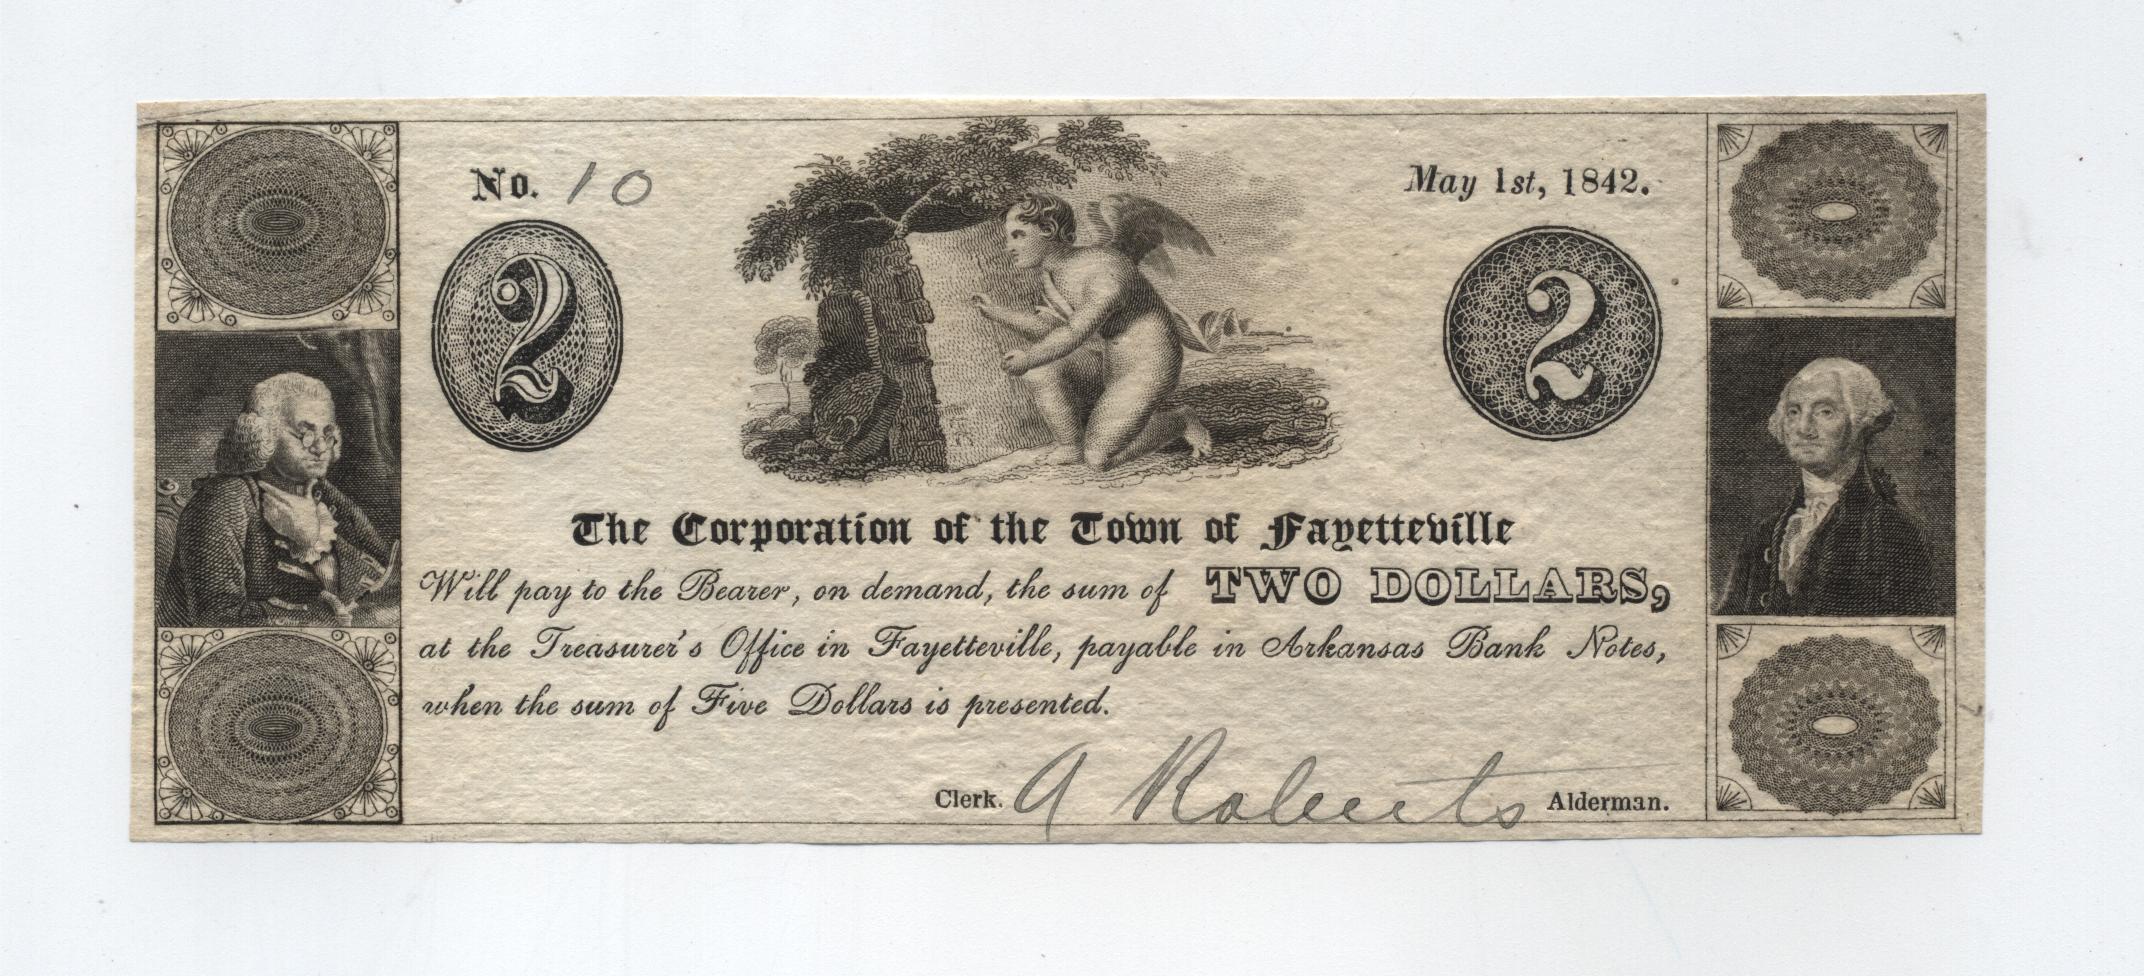 No. 10
May 1st, 1842.
2
2
The Corporation of the Town of Fayetteville
Will pay to the Bearer, on demand, the sum of TWO DOLLARS,
at the Treasurer's Office in Fayetteville, payable in Arkansas Bank Notes,
when the sum of Five Dollars is presented.
Clerk. A Roberts Alderman.